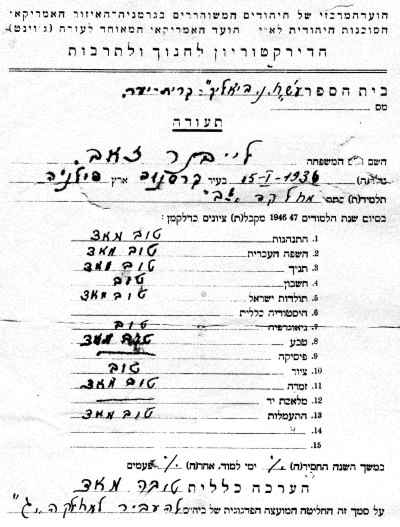 הועד המרכזי של היהודים המשוחררים בגרמניה־האיזור האמריקאי
הסוכנות היהודית לא״י הועד האמריקאי המאוחד לעזרה (ג׳וינט)
הדירקטוריון לחנוך ולתרבות
בית הספר ע״ש ח. נ. ביאליק
מס
תעודה
השם ושם המשפחה לייבנר זאב
נולד(ה) 15-I-1936 בעיר ארץ פולניה
תלמיד(ת)
בסיום שנת הלמודים 1946 47 מקבל(ת) ציונים כדלקמן:
1. התנהגות טוב מאד
2. השפה העברית טוב מאד
3. תניך טוב מאד
4. חשבון טוב
5. תולדות ישראל טוב מאד
6. היסטוריה כללית
7. גיאוגרפיה טוב
8. טבע טוב מאד
9. פיסיקה
10. ציור טוב
11. זמרה טוב מאד
12. מלאכת יד
13. התעמלות טוב מאד
14.
15.
במשך השנה החסיר(ה) ימי למוד, אחר(ה) פעמים
הערכה כללית טובה מאד
על סמך זה החליטה המועצה הפדגוגית של ביה״ס להעביר למחלקה ג׳